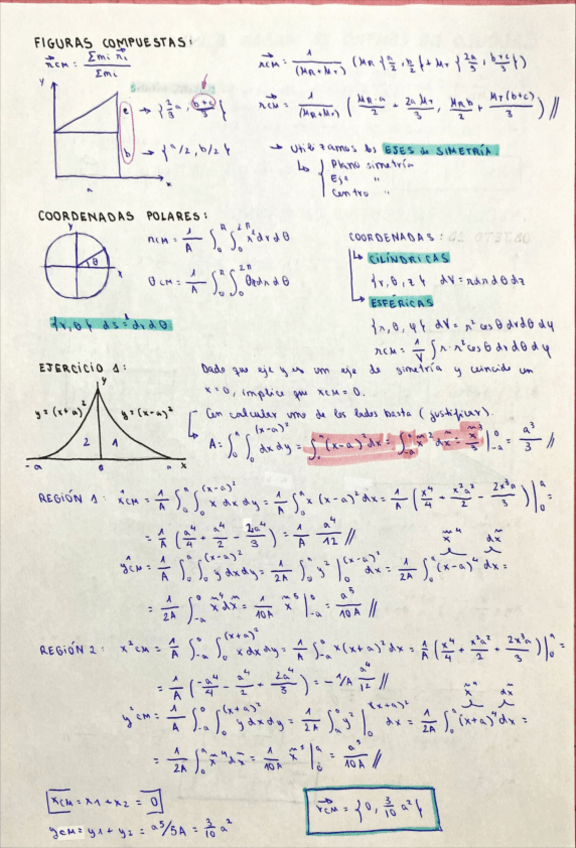 FIGURAS COMPUESTAS:
r⃗CM = Σmi r⃗i / Σmi
r⃗CM = 1/(MR+MT) (MR {a/2, b/2} + MT {2a/3, b+c/3})
y
c → {2/3 a, b+c/3}
r⃗CM = 1/(MR+MT) (MR·a/2 + 2a MT/3, MR b/2 + MT(b+c)/3) //
b → {a/2, b/2}
a x
→ Utilizamos los EJES de SIMETRÍA.
↳ { Plano simetría
Eje "
Centro "
COORDENADAS POLARES:
θ x
rCM = 1/A ∫₀^r ∫₀^2π r² dr dθ
θCM = 1/A ∫₀^r ∫₀^2π θr dr dθ
{r, θ} ds = dr dθ
COORDENADAS:
↳ CILÍNDRICAS
{r, θ, z} dV = r dr dθ dz
↳ ESFÉRICAS
{r, θ, φ} dV = r² cos θ dr dθ dφ
rCM = 1/V ∫ r · r² cos θ dr dθ dφ
EJERCICIO 1:
y
y = (x+a)² y = (x-a)²
2 1
-a 0 a x
Dado que eje y es un eje de simetría y coincide en
x=0, implica que xCM = 0.
Con calcular uno de los lados basta (justificar).
A = ∫₀^a ∫₀^(x-a)² dx dy = ∫₀^a (x-a)² dx = ∫₋ₐ^0 x̃² dx̃ = x̃³/3 |₋ₐ^0 = a³/3 //
REGIÓN 1: x¹CM = 1/A ∫₀^a ∫₀^(x-a)² x dx dy = 1/A ∫₀^a x (x-a)² dx = 1/A (x⁴/4 + x²a²/2 - 2x³a/3) |₀^a =
= 1/A (a⁴/4 + a⁴/2 - 2a⁴/3) = 1/A a⁴/12 //
x̃⁴ dx̃
y¹CM = 1/A ∫₀^a ∫₀^(x-a)² y dx dy = 1/2A ∫₀^a y² |₀^(x-a)² dx = 1/2A ∫₀^a (x-a)⁴ dx =
= 1/2A ∫₋ₐ^0 x̃⁴ dx̃ = 1/10A x̃⁵ |₋ₐ^0 = a⁵/10A //
REGIÓN 2: x²CM = 1/A ∫₋ₐ^0 ∫₀^(x+a)² x dx dy = 1/A ∫₋ₐ^0 x(x+a)² dx = 1/A (x⁴/4 + x²a²/2 + 2x³a/3) |
= 1/A (-a⁴/4 - a⁴/2 + 2a⁴/3) = -1/A a⁴/12 //
x̃⁴ dx̃
y²CM = 1/A ∫₋ₐ^0 ∫₀^(x+a)² y dx dy = 1/2A ∫ y² |₀^(x+a)² dx = 1/2A ∫ (x+a)⁴ dx =
= 1/2A ∫₀^a x̃⁴ dx̃ = 1/10A x̃⁵ |₀^a = a⁵/10A //
xCM = x1 + x2 = 0
r⃗CM = {0, 3/10 a²}
yCM = y1 + y2 = a⁵/5A = 3/10 a²